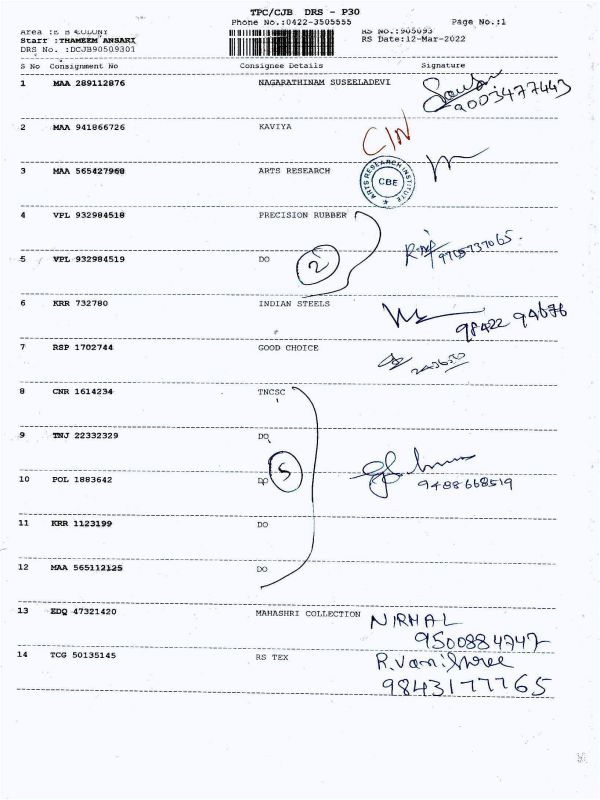 TPC/CJB DRS - P30
Phone No.:0422-3505555 Page No.:1
Area :E B COLONY RS No.:905093
Staff :THAMEEM ANSARI RS Date:12-Mar-2022
DRS No. :DCJB90509301
S No Consignment No Consignee Details Signature
1 MAA 289112876 NAGARATHINAM SUSEELADEVI
9003477443
2 MAA 941866726 KAVIYA
C/N
3 MAA 565427968 ARTS RESEARCH
ARTS RESEARCH INSTITUTE
CBE
4 VPL 932984518 PRECISION RUBBER
5 VPL 932984519 DO 2
6 KRR 732780 INDIAN STEELS
98422 94676
7 RSP 1702744 GOOD CHOICE
8 CNR 1614234 TNCSC
9 TNJ 22332329 DO
5
10 POL 1883642 DO 9488668519
11 KRR 1123199 DO
12 MAA 565112125 DO
13 EDQ 47321420 MAHASHRI COLLECTION NIRMAL
9500884747
14 TCG 50135145 RS TEX R.Vanishree
9843177765